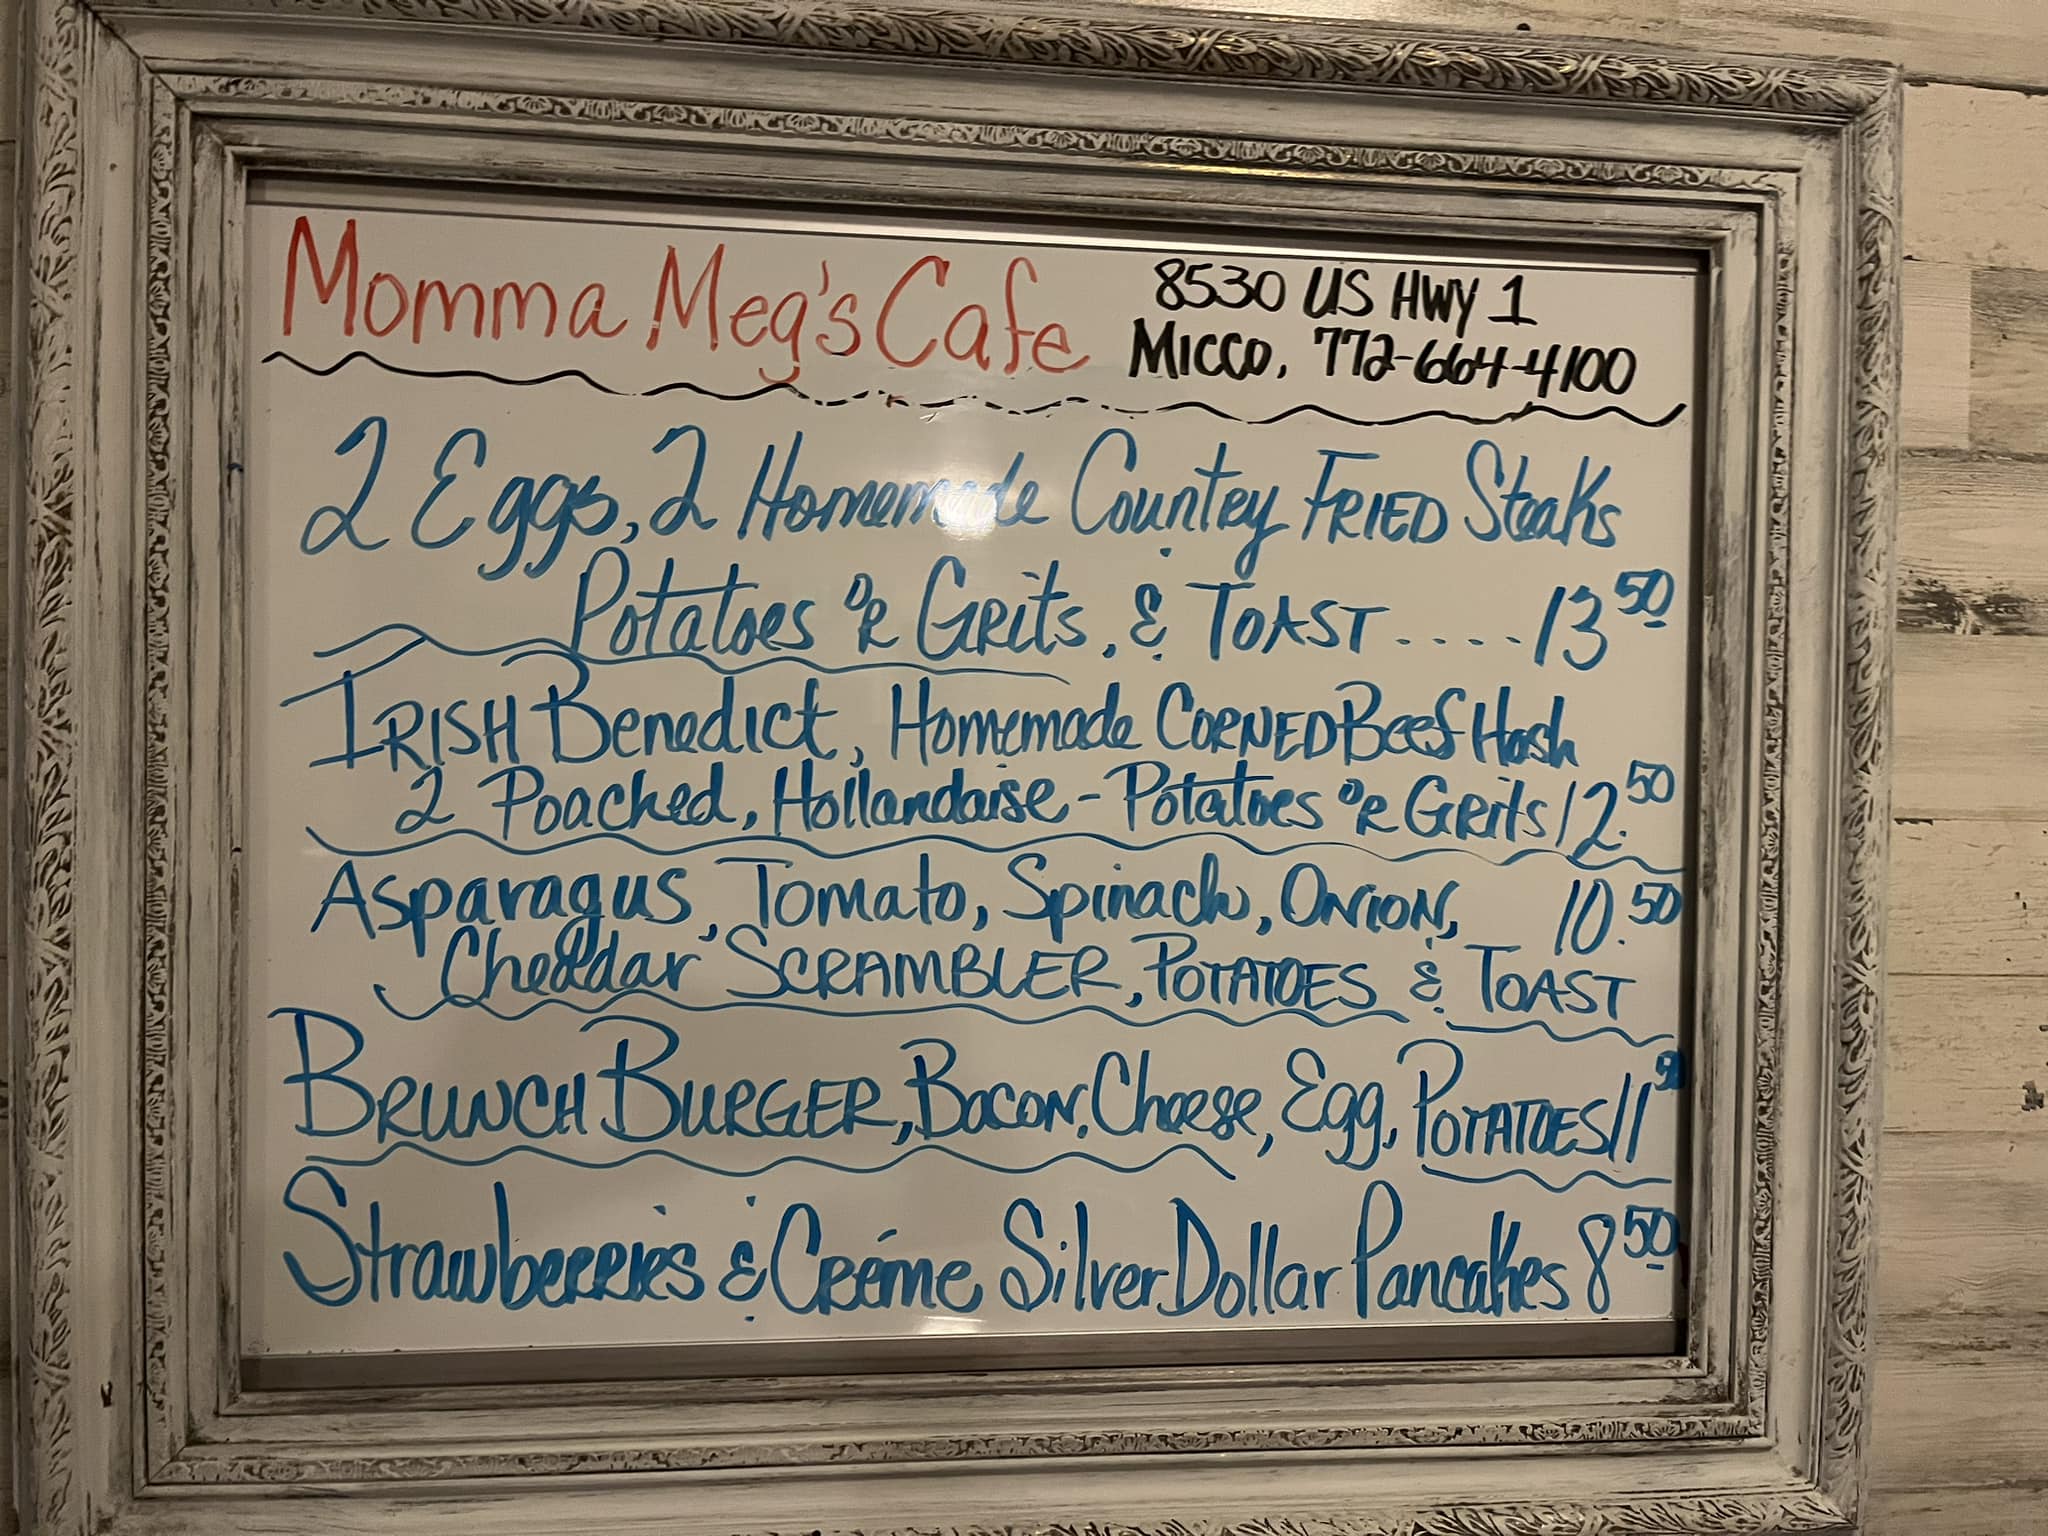 Momma Meg's Cafe
8530 US HWY 1
Micco, 772-664-4100
2 Eggs, 2 Homemade Country FRIED Steaks
Potatoes OR Grits, & TOAST.....13 50
IRISH Benedict, Homemade CORNED Beef Hash
2 Poached, Hollandaise - Potatoes OR Grits 12.50
Asparagus, Tomato, Spinach, ONION, 10.50
Cheddar SCRAMBLER, POTATOES & TOAST
BRUNCH BURGER, BACON, Cheese, Egg, POTATOES 11 50
Strawberries & Créme Silver Dollar Pancakes 8 50